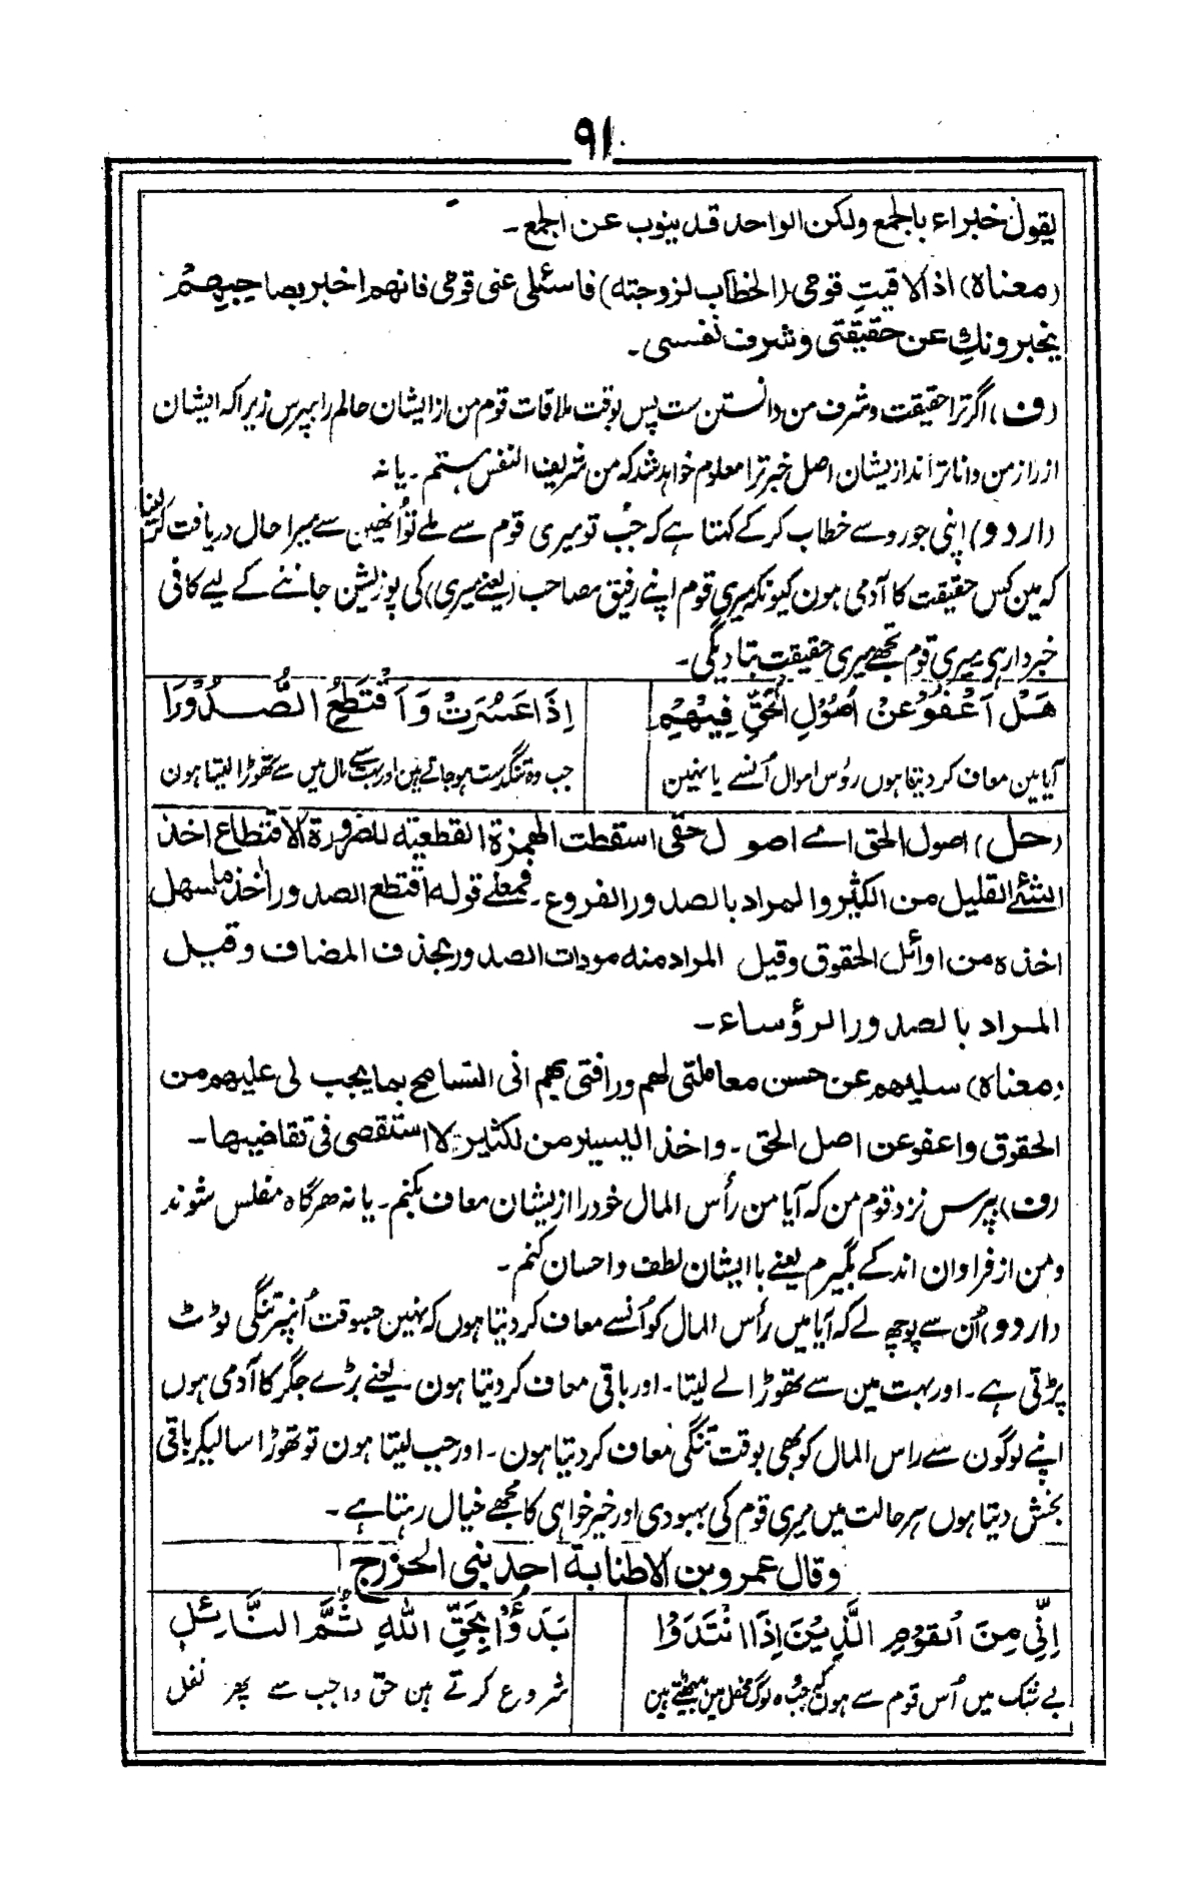 ٩١
يقول خبراء بالجمع ولكن الواحد قد ينوب عن الجمع ـ
(معناه) اذا لاقيتِ قومى (الخطاب لزوجته) فاسئلى عنى قومى فانهم اخبر بصاحبهم
يخبرونكِ عن حقيقتى وشرف نفسى ـ
(ف) اگر ترا حقیقت وشرف من دانستن ست پس بوقت ملاقات قوم من از ایشان حالم را بپرس زیراکه ایشان
از راز من دانا تر اند ازیشان اصل خبر ترا معلوم خواهد شد که من شریف النفس هستم ـ یا نه
(اردو) اپنی جورو سے خطاب کر کے کہتا ہے کہ جب تو میری قوم سے ملے تو اُنھین سے میرا حال دریافت کر لینا
کہ مین کس حقیقت کا آدمی ہون کیونکہ میری قوم اپنے رفیق مصاحب (یعنے میری) کی پوزیشن جاننے کے لیے کافی
خبردار ہی میری قوم تجھے میری حقیقت بتا دیگی ـ
هَلْ اَعْفُوْ عَنْ اُصُوْلِ الْحَقِّ فِيْهِمْ اِذَا عَسُرَتْ وَاَقْتَطِعُ الصُّدُوْرَا
آیا مین معاف کر دیتا ہوں رؤس اموال اُنسے یا نہین جب وہ تنگدست ہو جاتے ہین اور بہت سے مال میں سے تھوڑا لیتا ہون
(حل) اصول الحق اے اصول حقى اسقطت الهمزة القطعية للضرورة الاقتطاع اخذ
الشئ القليل من الكثير والمراد بالصدور الفروع ـ فمعلے قوله اقتطع الصدور اٰخذ ما سهل
اخذه من اوائل الحقوق وقيل المراد منه مودات الصدور بحذف المضاف وقيل
المراد بالصدور الرؤساء ـ
(معناه) سليهم عن حسن معاملتى لهم ورافتى بهم انى التسامح بما يجب لى عليهم من
الحقوق واعفو عن اصل الحق ـ واخذ اليسير من لكثير لا استقصى فى تقاضيها ـ
(ف) بپرس نزد قوم من که آیا من رأس المال خود را ازیشان معاف بکنم ـ یا نه هرگاه مفلس شوند
ومن از فراوان اندکے بگیرم یعنے با ایشان لطف و احسان کنم ـ
(اردو) اُن سے پوچھ لے کہ آیا میں رأس المال کو اُنسے معاف کر دیتا ہوں کہ نہین جسوقت اُنپر تنگی ٹوٹ
پڑتی ہے ـ اور بہت مین سے تھوڑا لے لیتا ـ اور باقی معاف کر دیتا ہون یعنے بڑے جگر کا آدمی ہوں
اپنے لوگون سے راس المال کو بھی بوقت تنگی معاف کر دیتا ہون ـ اور جب لیتا ہون تو تھوڑا سا لیکر باقی
بخش دیتا ہوں ہر حالت میں میری قوم کی بہبودی اور خیر خواہی کا مجھے خیال رہتا ہے ـ
وقال عمرو بن الاطنابة احد بنى الخزرج
اِنِّى مِنَ الْقَوْمِ الَّذِيْنَ اِذَا انْتَدَوْا بَدَؤُا بِحَقِّ اللّٰهِ ثُمَّ النَّائِلِ
بے شک میں اُس قوم سے ہوں کہ جب وہ لوگ محفل مین بیٹھتے ہین شروع کرتے ہین حق واجب سے پھر نفل